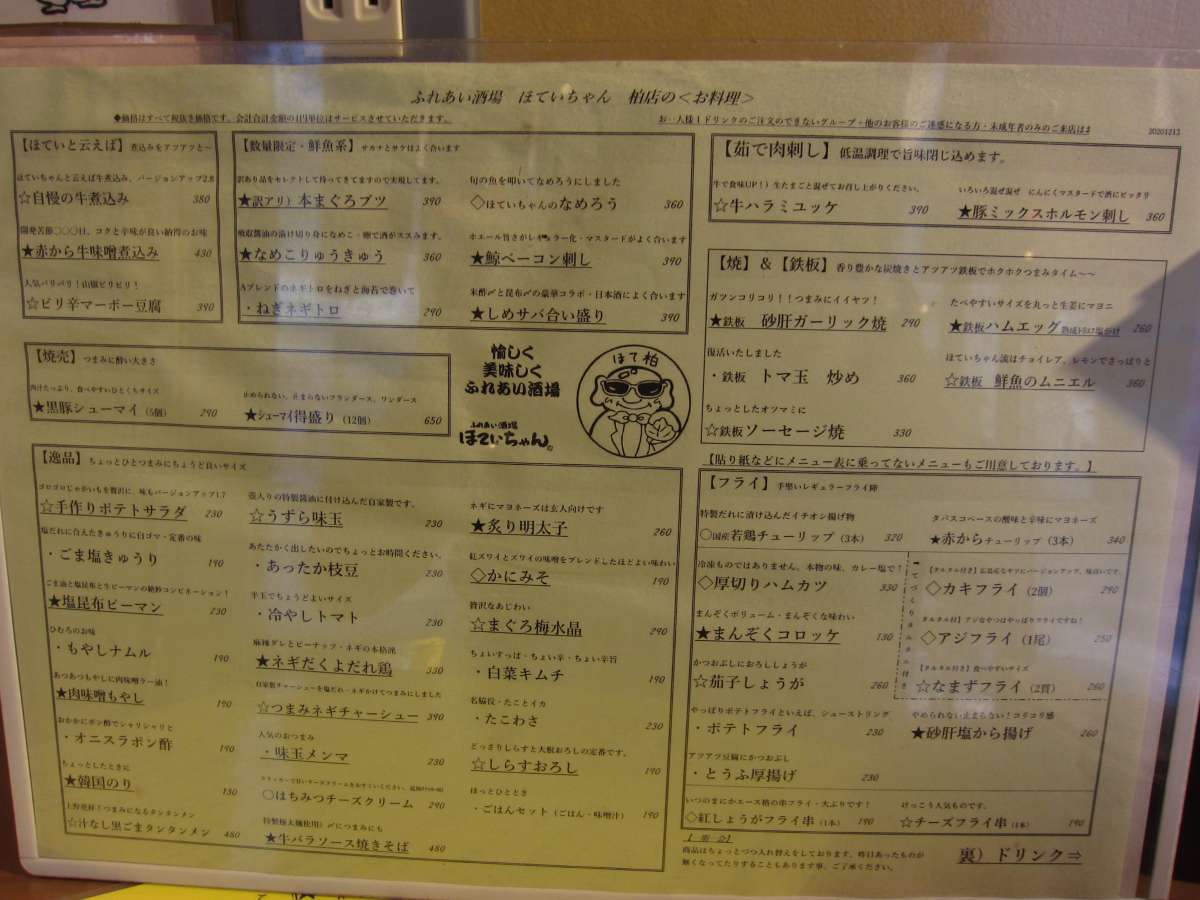 ふれあい酒場 ほていちゃん 柏店の＜お料理＞
◆価格はすべて税抜き価格です。会計合計金額の1円単位はサービスさせていただきます。
お一人様1ドリンクのご注文のできないグループ・他のお客様のご迷惑になる方・未成年者のみのご来店は
20201213
【ほていと云えば】 煮込みをアツアツと～
ほていちゃんと云えば牛煮込み、バージョンアップ2.8
☆自慢の牛煮込み 380
開発苦節○○○日、コクと辛味が良い納得のお味
★赤から牛味噌煮込み 430
人気バリバリ！山椒ビリビリ！
☆ビリ辛マーボー豆腐 390
【数量限定・鮮魚系】 サカナとサケはよく合います
訳あり品をセレクトして持ってきてますので実現してます。
★訳アリ）本まぐろブツ 390
★なめこりゅうきゅう 360
Aブレンドのネギトロをねぎと海苔で巻いて
・ねぎネギトロ 290
旬の魚を叩いてなめろうにしました
◇ほていちゃんのなめろう 360
★鯨ベーコン刺し 390
米酢〆と昆布〆の豪華コラボ・日本酒によく合います
★しめサバ合い盛り 390
【茹で肉刺し】 低温調理で旨味閉じ込めます。
牛で食味UP！）生たまごと混ぜてお召し上がりください。
☆牛ハラミユッケ 390
いろいろ混ぜ混ぜ にんにくマスタードで酒にピッタリ
★豚ミックスホルモン刺し 360
【焼】＆【鉄板】 香り豊かな炭焼きとアツアツ鉄板でホクホクつまみタイム～～
ガツンコリコリ！！つまみにイイヤツ！
★鉄板 砂肝ガーリック焼 290
たべやすいサイズを丸っと生姜にマヨニ
★鉄板ハムエッグ 260
復活いたしました
・鉄板 トマ玉 炒め 360
ほていちゃん流はチョイレア、レモンでさっぱりと
☆鉄板 鮮魚のムニエル 360
ちょっとしたオツマミに
☆鉄板ソーセージ焼 330
【焼売】 つまみに酔い大きさ
肉汁たっぷり、食べやすいひとくちサイズ
★黒豚シューマイ（5個） 290
止められない、止まらないフランダース、ワンダース
★シューマイ得盛り（12個） 650
愉しく
美味しく
ふれあい酒場
ふれあい酒場
ほていちゃん
ほて柏
【貼り紙などにメニュー表に乗ってないメニューもご用意しております。】
【逸品】 ちょっとひとつまみにちょうど良いサイズ
ゴロゴロじゃがいもを贅沢に、味もバージョンアップ1.7
☆手作りポテトサラダ 230
塩だれに合えたきゅうりに白ゴマ・定番の味
・ごま塩きゅうり 190
ごま油と塩昆布と生ピーマンの絶妙コンビネーション！
★塩昆布ピーマン 230
ひむろのお味
・もやしナムル 190
あつあつもやしに肉味噌ラー油！
★肉味噌もやし 190
おかかにポン酢でシャリシャリと
・オニスラポン酢 190
ちょっとしたときに
★韓国のり 130
上野発祥！つまみになるタンタンメン
☆汁なし黒ごまタンタンメン 480
壺入りの特製醤油に付け込んだ自家製です。
☆うずら味玉 230
あたたかく出したいのでちょっとお時間ください。
・あったか枝豆 230
半玉でちょうどよいサイズ
・冷やしトマト 230
麻辣ダレとピーナッツ・ネギの本格派
★ネギだくよだれ鶏 330
自家製チャーシューを塩だれ・ネギかけてつまみにしました
☆つまみネギチャーシュー 390
人気のおつまみ
・味玉メンマ 230
○はちみつチーズクリーム 290
特製極太麺使用）〆につまみにも
★牛バラソース焼きそば 480
ネギにマヨネーズは玄人向けです
★炙り明太子 260
紅ズワイとズワイの味噌をブレンドしたほどよい味わい
◇かにみそ 190
贅沢なあじわい
☆まぐろ梅水晶 290
ちょいすっぱ・ちょい辛・ちょい辛旨
・白菜キムチ 190
名脇役・たことイカ
・たこわさ 230
どっさりしらすと大根おろしの定番です。
☆しらすおろし 190
ほっとひととき
・ごはんセット（ごはん・味噌汁） 190
【フライ】 手堅いレギュラーフライ陣
特製だれに漬け込んだイチオシ揚げ物
○国産若鶏チューリップ（3本） 320
タバスコベースの酸味と辛味にマヨネーズ
★赤からチューリップ（3本） 340
冷凍ものではありません、本物の味、カレー塩で！
◇厚切りハムカツ 330
◇カキフライ（2個） 290
まんぞくボリューム・まんぞくな味わい
★まんぞくコロッケ 130
【タルタル付】アジなやつはやっぱりフライですね！
◇アジフライ（1尾） 250
かつおぶしにおろししょうが
☆茄子しょうが 260
【タルタル付き】食べやすいサイズ
☆なまずフライ（2貫） 260
てづくりタルタル付き
やっぱりポテトフライといえば、シューストリング
・ポテトフライ 230
やめられない止まらない！コリコリ感
★砂肝塩から揚げ 260
アツアツ豆腐にかつおぶし
・とうふ厚揚げ 230
いつのまにかエース格の串フライ・大ぶりです！
◇紅しょうがフライ串（1本） 190
けっこう人気ものです。
☆チーズフライ串（1本） 190
商品はちょっとづつ入れ替えをしております。昨日あったものが
無くなってたりすることもあります事、ご了承ください。
裏）ドリンク⇒